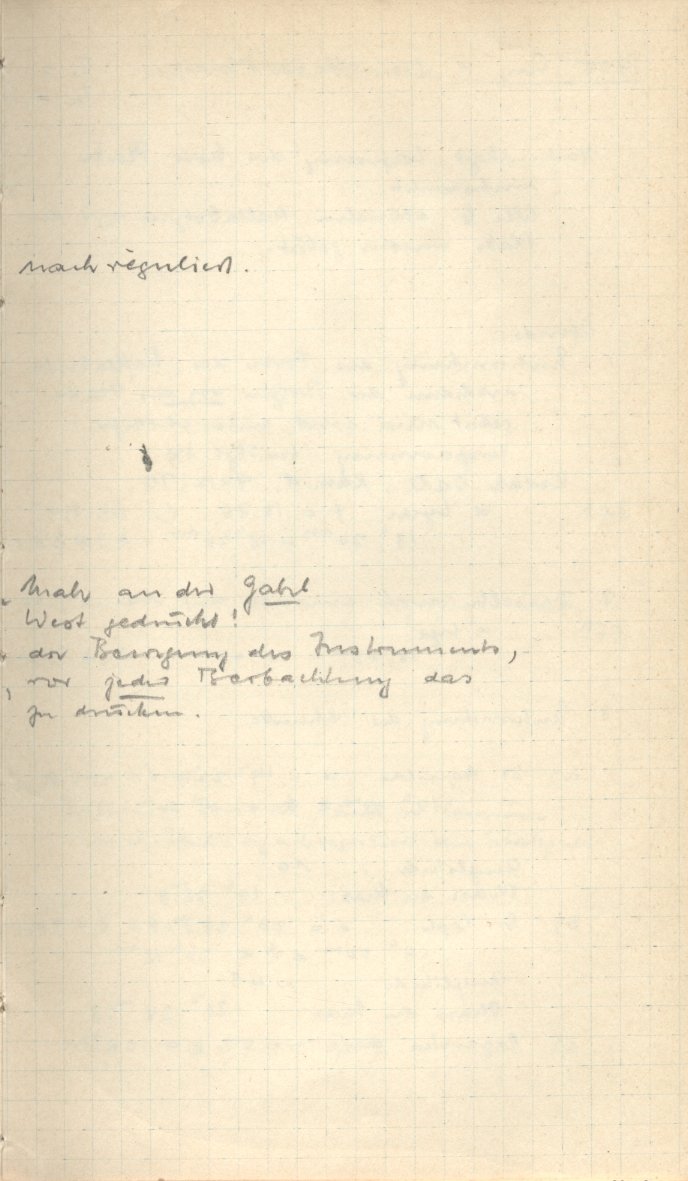 nach reguliert.
Mals an der Gabel
West gedrückt!
der Bewegung des Instruments,
vor jeder Beobachtung das
zu drücken.